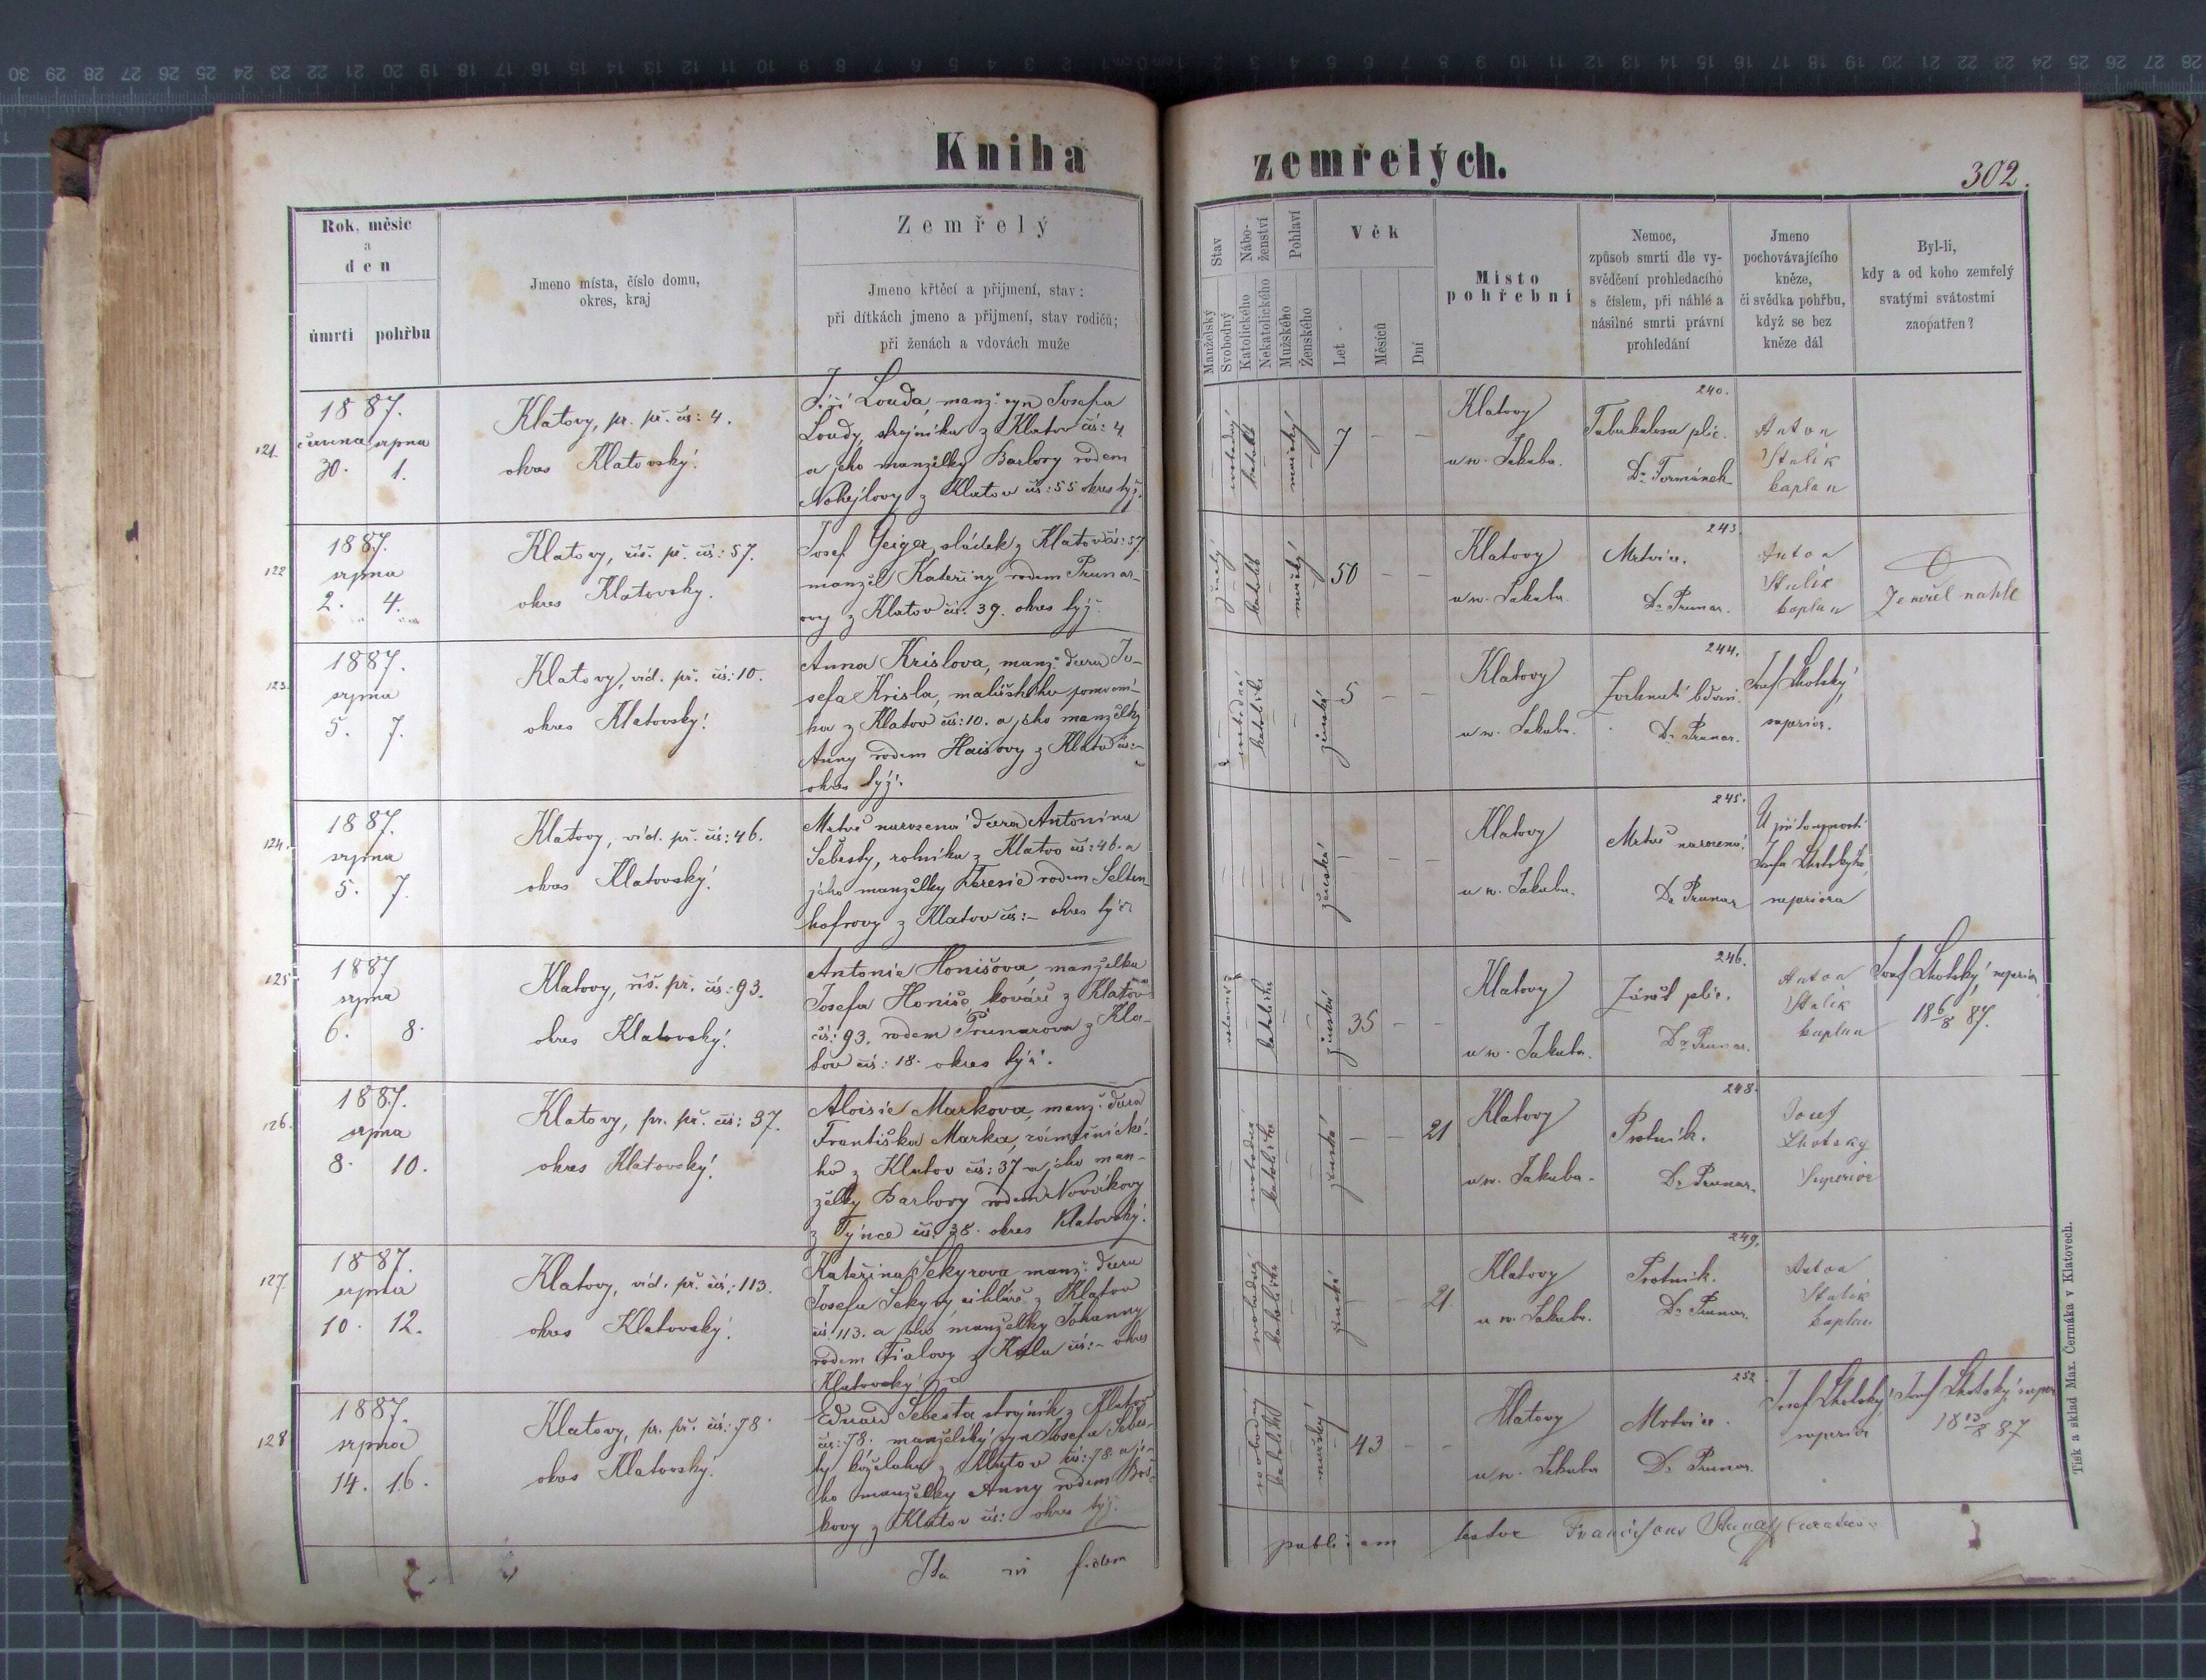 Kniha zemřelých.
302.
Rok, měsíc
a
den
úmrtí pohřbu
Jmeno místa, číslo domu,
okres, kraj
Zemřelý
Jmeno křtěcí a přijmení, stav:
při dítkách jmeno a přijmení, stav rodičů;
při ženách a vdovách muže
Stav
Manželský
Svobodný
Nábo-
ženství
Katolického
Nekatolického
Pohlaví
Mužského
Ženského
Věk
Let
Měsíců
Dní
Místo
pohřební
Nemoc,
způsob smrti dle vy-
svědčení prohledacího
s číslem, při náhlé a
násilné smrti právní
prohledání
Jmeno
pochovávajícího
kněze,
či svědka pohřbu,
když se bez
kněze dál
Byl-li,
kdy a od koho zemřelý
svatými svátostmi
zaopatřen?
121.
1887.
srpna
30. 1.
Klatovy, pr. př. čís: 4.
okres Klatovský.
Jiří Louda, manž. syn Josefa
Loudy, strojníka z Klatov čís: 4
a jeho manželky Barbory rodem
Nohejlovy z Klatov čís: 55 okres týž.
katolík
mužský
7 – –
Klatovy
u sv. Jakuba.
240.
Tuberkulosa plic.
Dr. Formánek
Anton
Stulík
kaplan
122
1887.
srpna
2. 4.
Klatovy, říš. př. čís: 57.
okres Klatovský.
Josef Geiger, sládek z Klatov čís: 57
manžel Kateřiny rodem Prunar-
ovy z Klatov čís. 39. okres týž.
ženatý
katolík
mužský
50 – –
Klatovy
u sv. Jakuba.
243.
Mrtvice.
Dr. Prunar.
Anton
Stulík
kaplan
Zemřel nahle
123.
1887.
srpna
5. 7.
Klatovy, víd. př. čís: 10.
okres Klatovský.
Anna Krislova, manž. dcera Jo-
sefa Krisla, pomocní-
ka z Klatov čís: 10. a jeho manželky
Anny rodem Haisovy z Klatov čís: –
okres týž.
svobodná
katolička
ženská
5 – –
Klatovy
u sv. Jakuba.
244.
Dr. Prunar.
Josef Lhotský,
superior.
124.
1887.
srpna
5. 7.
Klatovy, víd. př. čís: 46.
okres Klatovský.
Mrtvě narozená dcera Antonína
Šebesty, rolníka z Klatov čís: 46. a
jeho manželky Teresie rodem Selten-
hofrovy z Klatov čís: – okres týž
ženská
– – –
Klatovy
u sv. Jakuba.
245.
Mrtvě narozená.
Dr. Prunar
U přítomnosti
Josefa Lhotského,
superiora
125
1887
srpna
6. 8.
Klatovy, říš. př. čís: 93.
okres Klatovský.
Antonie Honišova, manželka
Josefa Honiše kováře z Klatov
čís: 93, rodem Prunarova z Kla-
tov čís: 18. okres týž.
katolička
ženská
35 – –
Klatovy
u sv. Jakuba.
246.
Zánět plic.
Dr. Prunar.
Anton
Stulík
kaplan
Josef Lhotský, superior
18 6/8 87.
126.
1887.
srpna
8. 10.
Klatovy, pr. př. čís: 37.
okres Klatovský.
Aloisie Markova, manž. dcera
Františka Marka, zámečnické-
ho z Klatov čís: 37 a jeho man-
želky Barbory rodem Novákovy
z Týnce čís. 38. okres Klatovský.
svobodná
katolička
ženská
– – 21
Klatovy
u sv. Jakuba.
248.
Psotník.
Dr. Prunar.
Josef
Lhotsky
Superior
127.
1887.
srpna
10. 12.
Klatovy, víd. př. čís: 113.
okres Klatovský.
Kateřina Sekyrova manž. dcera
Josefa Sekyry, cihláře z Klatov
čís. 113. a jeho manželky Johanny
rodem Fialovy z Kalu čís: – okres
Klatovský.
svobodná
katolička
ženská
– – 21.
Klatovy
u sv. Jakuba.
249.
Psotník.
Dr. Prunar.
Anton
Stulík
kaplan
128
1887.
srpna
14. 16.
Klatovy, pr. př. čís: 78
okres Klatovský.
Eduard Šebesta strojník z Klatov
čís: 78. manželský syn Josefa Šebes-
ty koželuha z Klatov čís: 78. a je-
ho manželky Anny rodem
z Klatov čís: okres týž.
svobodný
katolík
mužský
43 – –
Klatovy
u sv. Jakuba
252.
Mrtvice.
Dr. Prunar.
Josef Lhotský,
superior
Josef Lhotský, super
18 13/8 87
Ita in fidem publicam testor Franciscus
Tisk a sklad Max. Čermáka v Klatovech.